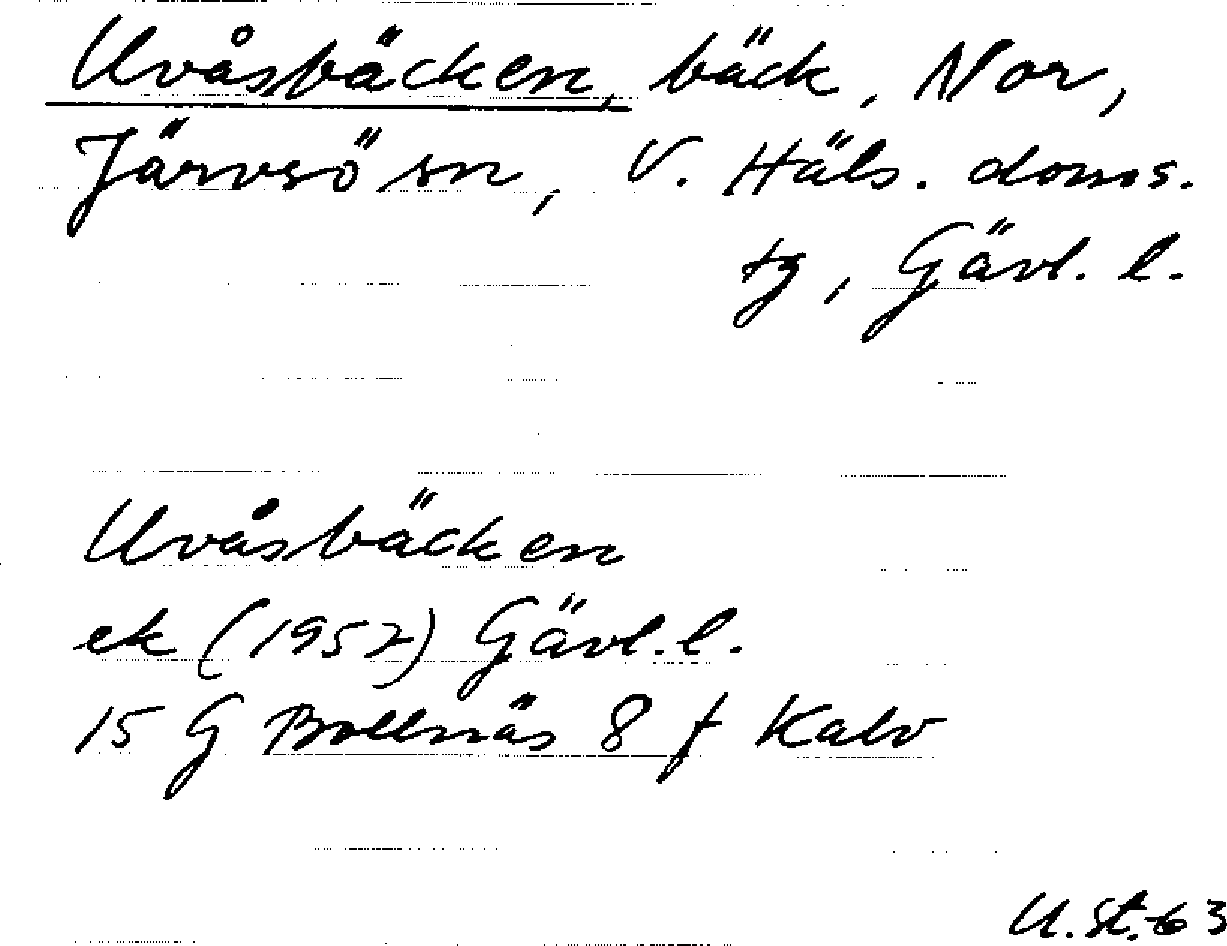 Uvåsbäcken, bäck, Nor,
Järvsö sn, V. Häls. doms.
tg, Gävl. l.
Uvåsbäcken
ek (1952) Gävl. l.
15 G Bollnäs 8 f Kalv
U. St. 63